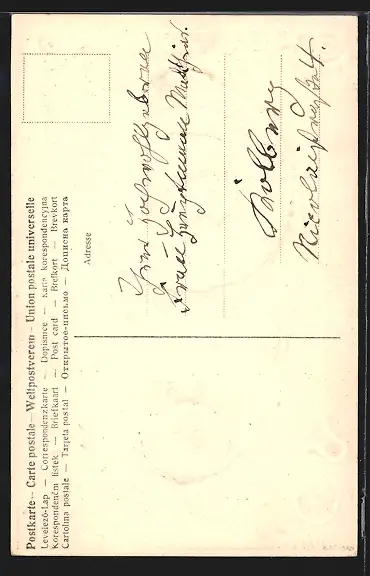 Postkarte — Carte postale — Weltpostverein — Union postale universelle
Levelező-Lap — Correspondenzkarte — Dopisnice — Karta korespondencyjna
Korespondenční lístek — Briefkaart — Post card — Brefkort — Brevkort
Cartolina postale — Tarjeta postal — Открытое письмо — Дописна карта
Adresse
Ihrer Hochwohlgeboren
Frau Hauptmann
Kolberg
Nicolaistraße